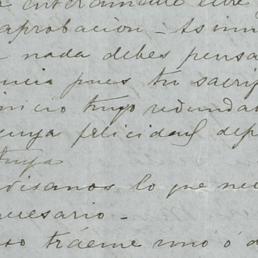 aprobacion - Asimi
nada debes pensa
ncia pues tu sacrif
inicio tuyo redundar
cuya felicidad dep
tuya.
visanos lo que ne
ecesario -
so tráeme uno ó d